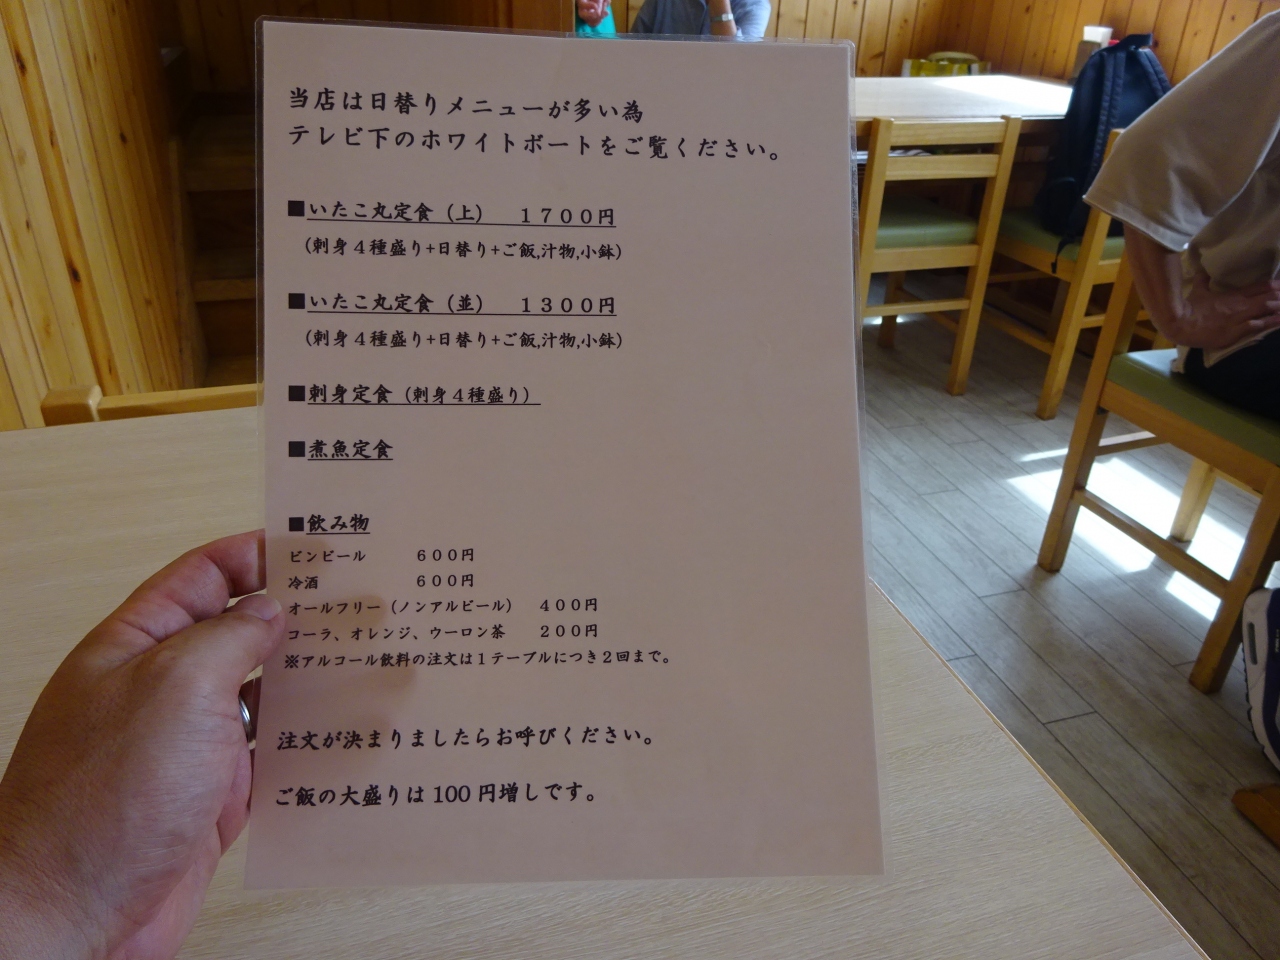 当店は日替りメニューが多い為
テレビ下のホワイトボートをご覧ください。
■いたこ丸定食（上）　１７００円
（刺身４種盛り+日替り+ご飯,汁物,小鉢）
■いたこ丸定食（並）　１３００円
（刺身４種盛り+日替り+ご飯,汁物,小鉢）
■刺身定食（刺身４種盛り）
■煮魚定食
■飲み物
ビンビール　６００円
冷酒　６００円
オールフリー（ノンアルビール）　４００円
コーラ、オレンジ、ウーロン茶　２００円
※アルコール飲料の注文は１テーブルにつき２回まで。
注文が決まりましたらお呼びください。
ご飯の大盛りは 100 円増しです。